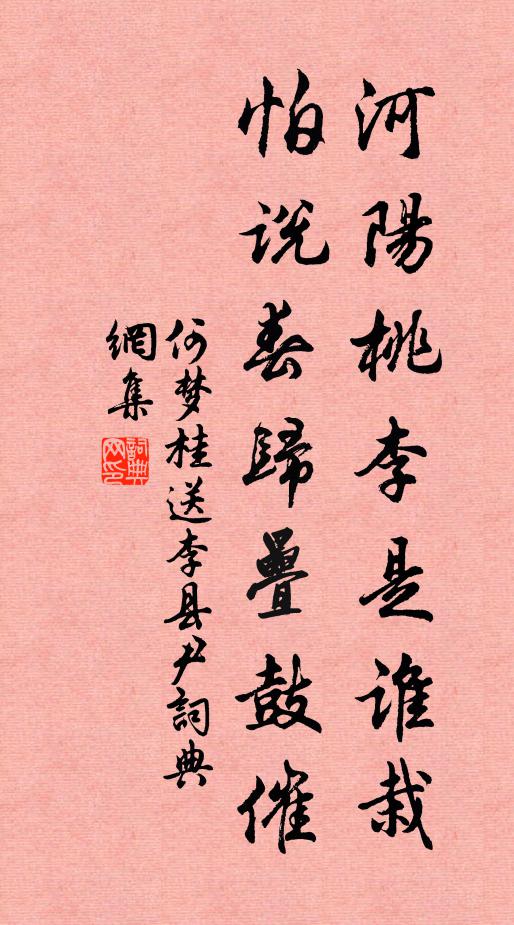 河陽桃李是誰栽
怕说春歸疊鼓催
何梦桂送李县尹詞典
網集
詞典
网印